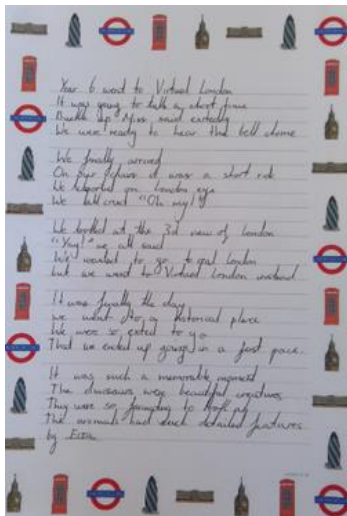 Year 6 went to Virtual London
It was going to take a short time
Buckle up Miss said
We were ready to hear the bell chime
We finally arrived
On our it was a short ride
We on London eye
We all cried "Oh my!"
We looked at the 3d view of London
"Yay!" we all said
We wanted to go to real London
but we went to Virtual London instead
It was finally the day
we went to a historical place
We were so exited to go
That we ended up going in a fast pace.
It was such a memorable moment
The dinosaurs were beautiful creatures
They were so to look at
The animals had such detailed features
by